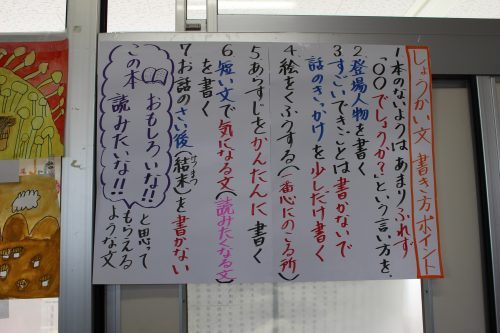 しょうかい文 書き方ポイント
1 本のないようは あまりふれず
「○○でしょうか?」という言い方を、
2 登場人物を書く
3 すごいできごとは 書かないで
話のきっかけを 少しだけ書く
4 絵をくふうする(一番心にのこる所)
5 あらすじを かんたんに 書く
6 短い文で 気になる文(読みたくなる文)
を書く
7 お話のさい後(結末)を 書かない
けつまつ
この本 おもしろいな!!
読みたいな!!
と思って
もらえる
ような文